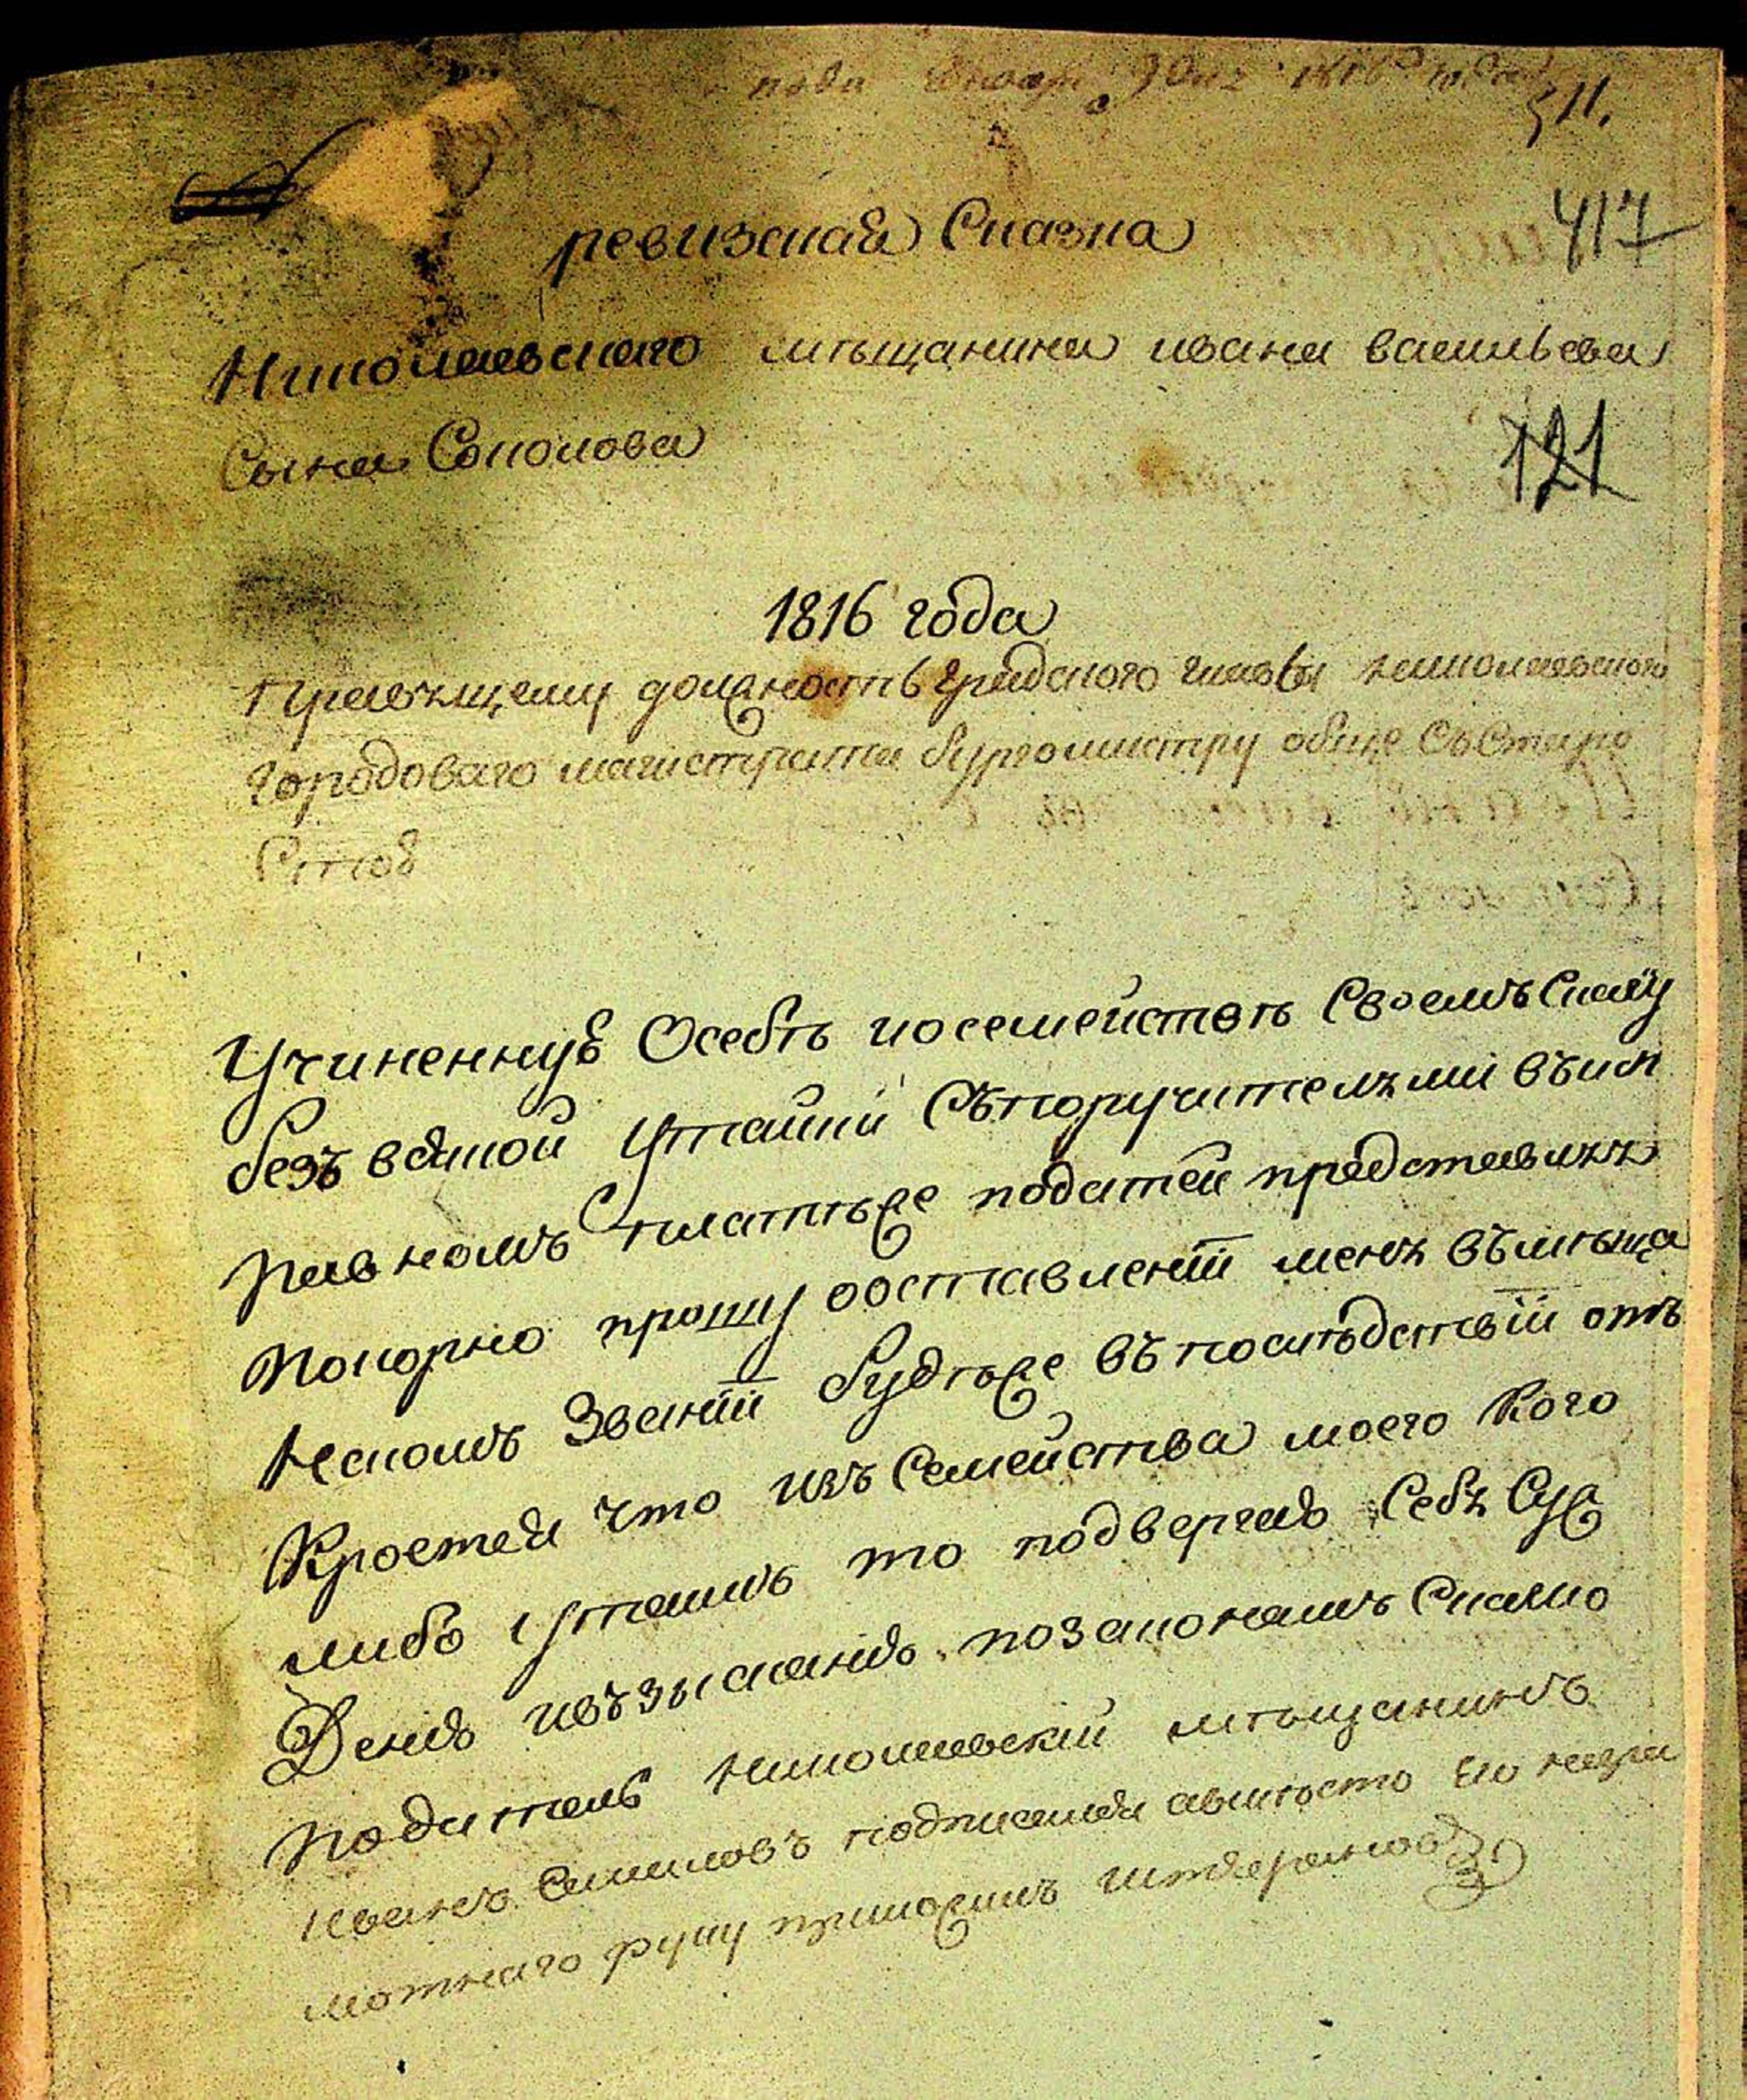 511.
417
ревизская Сказка
Николаевскаго мѣщанина ивана васильева
Сына Соколова
121
1816 года
Правящему должность градского главы николаевского
городоваго магистрата бургомистру обще Состаро
Стою
Учиненную Осебѣ исемействѣ Своемъ Сказку
безъ всякой утайки Съпоручителями въис
равномъ платѣже податей представляя
покорно прошу ооставленіи меня въмѣща
нскомъ Званіи будѣже въпослѣдствіи отъ
Кроется что изъ Семейства моего Кого
либо утаилъ то подвергаю Себя Суж
Дению ивъзысканию позаконамъ Сказко
податель николаевскій мѣщанинъ
иванъ подписался авмѣсто его негра
мотнаго руку приложилъ